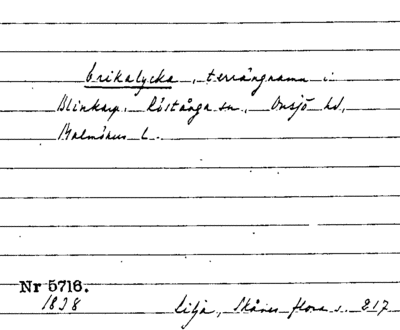 Erikalycka, terrängnamn i
Blinkarp, Röstånga sn., Onsjö hd,
Malmöhus L.
Nr 5716.
1838
Lilja, Skånes flora s. 817